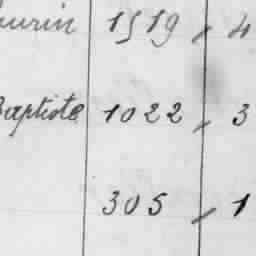 urin 1519 , 4
Baptiste 1022 , 3
305 , 1